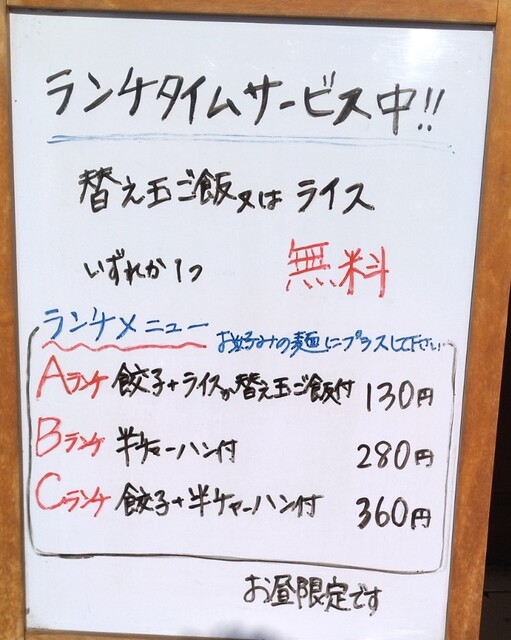 ランチタイムサービス中!!
替え玉ご飯又はライス
いずれか1つ 無料
ランチメニュー お好みの麺にプラスして下さい
Aランチ 餃子+ライスか替え玉ご飯付 130円
Bランチ 半チャーハン付 280円
Cランチ 餃子+半チャーハン付 360円
お昼限定です